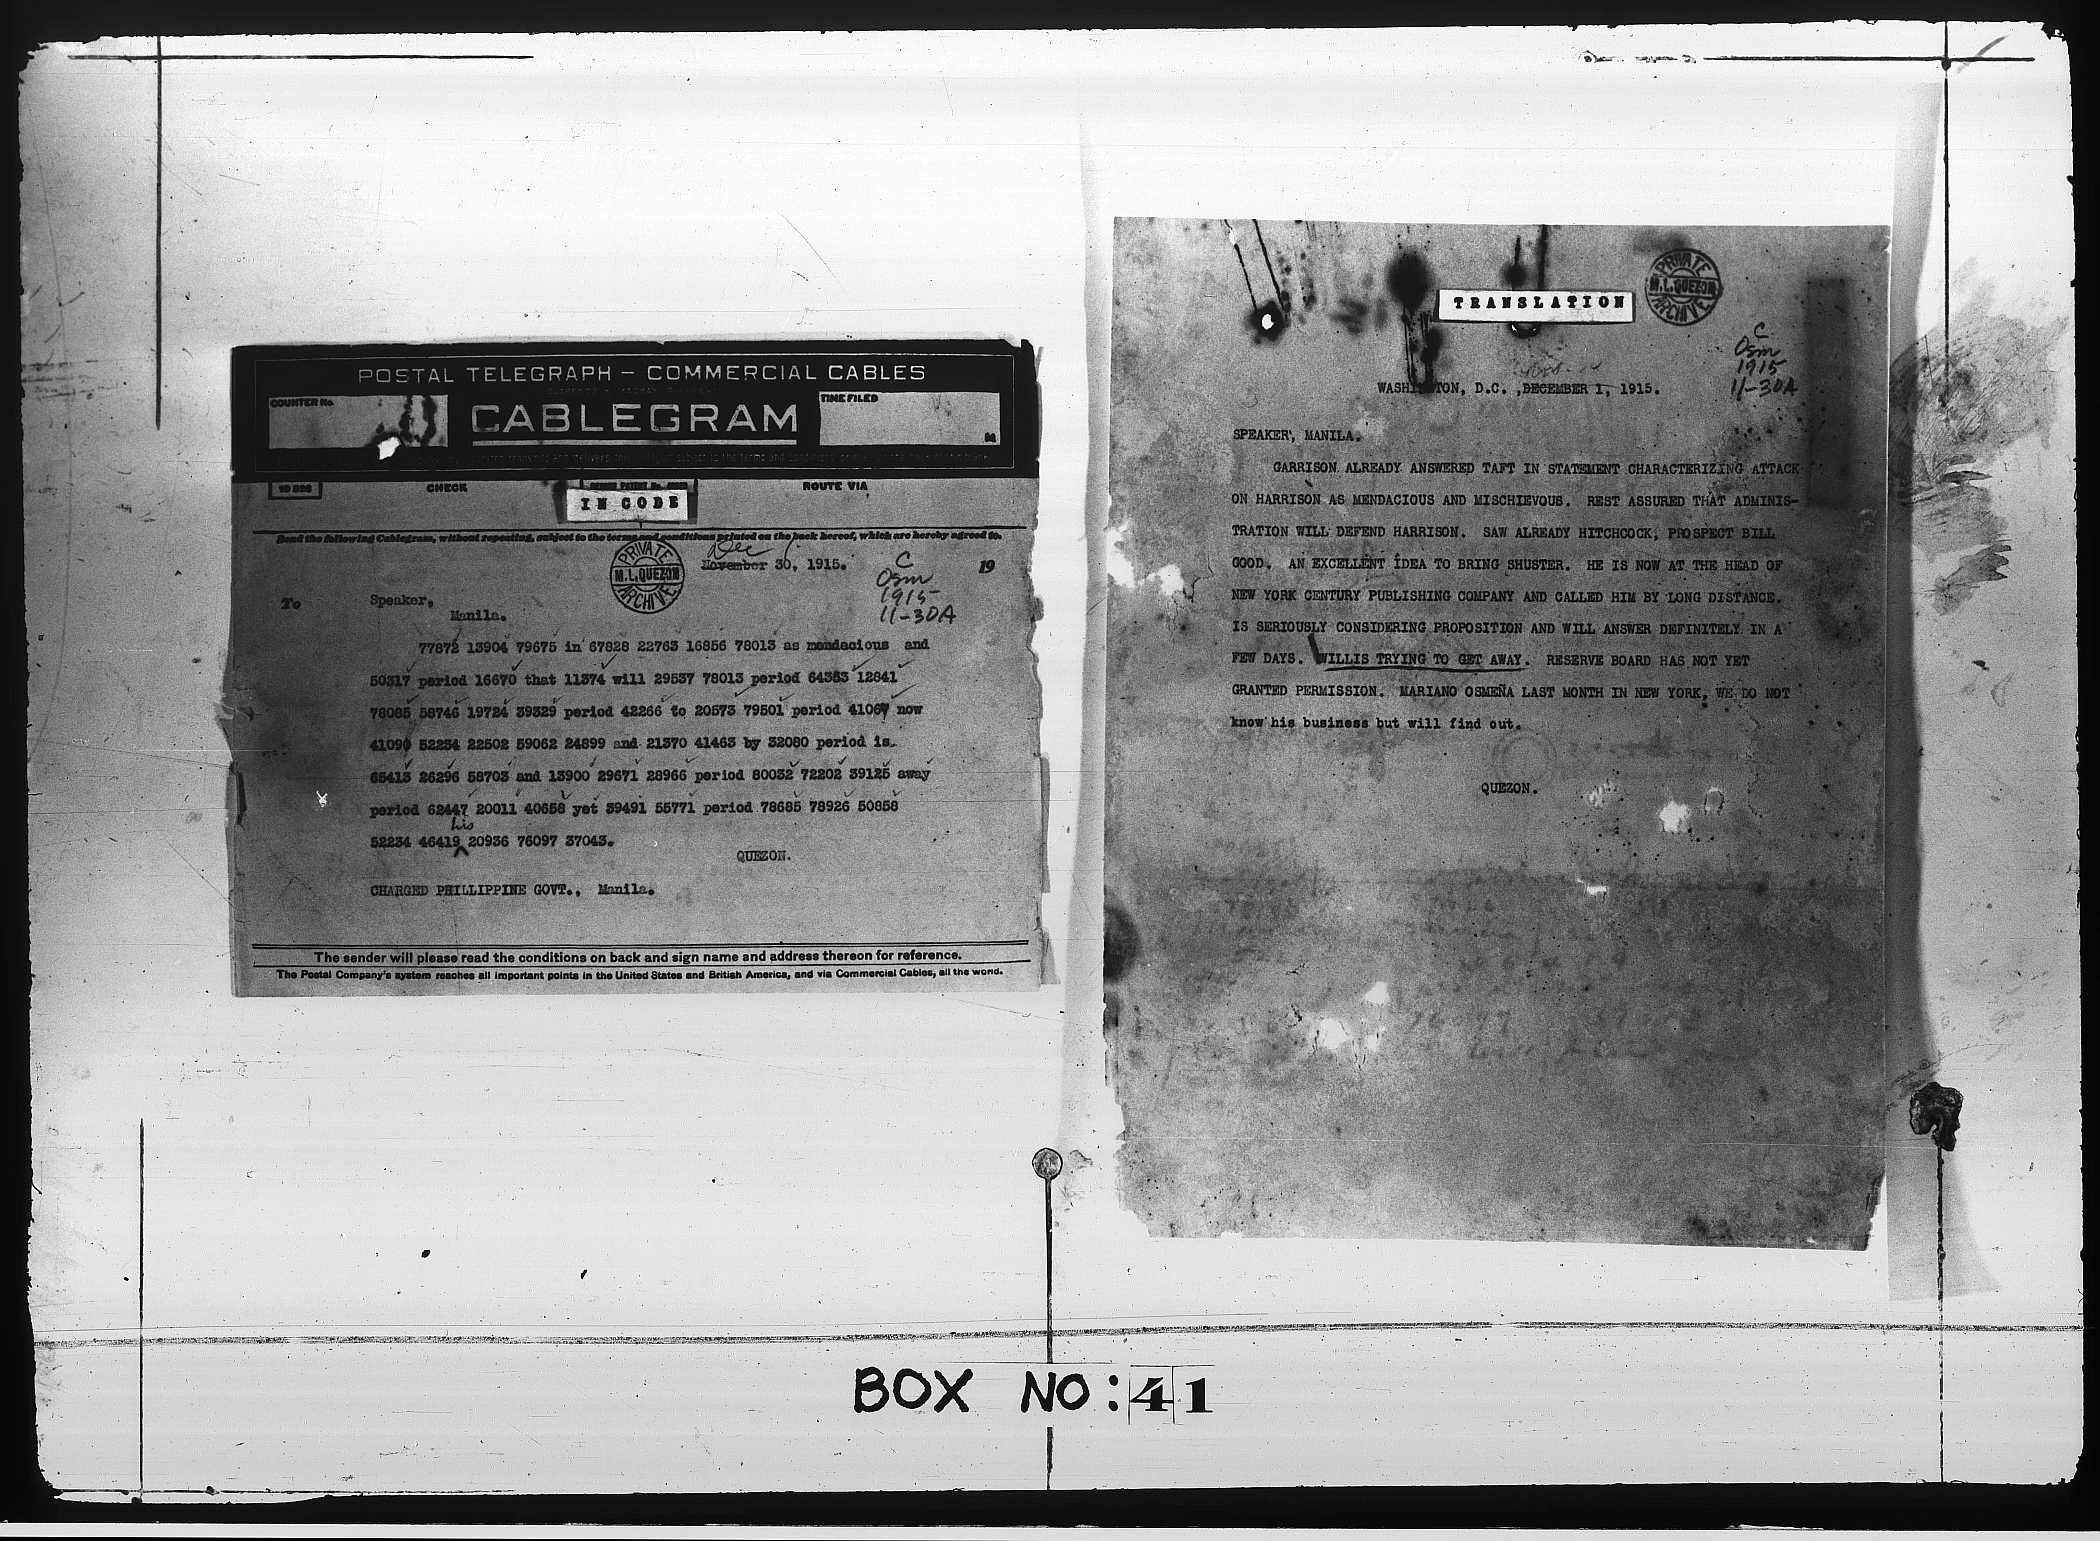 POSTAL TELEGRAPH – COMMERCIAL CABLES
COUNTER No.
CABLEGRAM
TIME FILED
M
CHECK
ROUTE VIA
IN CODE
Send the following Cablegram, without repeating, subject to the terms and conditions printed on the back hereof, which are hereby agreed to.
PRIVATE
M.L. QUEZON
ARCHIVE
Dec 1
November 30, 1915.
19
C
Osm
1915
11-30A
To
Speaker,
Manila.
77872 13904 79675 in 67828 22763 16856 78013 as mendacious and
50317 period 16670 that 11374 will 29537 78013 period 64353 12841
78085 58746 19724 39329 period 42266 to 20573 79501 period 41067 now
41090 52234 22502 59062 24899 and 21370 41463 by 32080 period is
65413 26296 58703 and 13900 29671 28966 period 80032 72202 39125 away
period 62447 20011 40658 yet 39491 55771 period 78685 78926 50858
his
52234 46419 20936 76097 37043.
QUEZON.
CHARGED PHILLIPPINE GOVT., Manila.
The sender will please read the conditions on back and sign name and address thereon for reference.
The Postal Company's system reaches all important points in the United States and British America, and via Commercial Cables, all the world.
TRANSLATION
PRIVATE
M.L. QUEZON
ARCHIVE
C
Osm
1915
11-30A
WASHINGTON, D.C. ,DECEMBER 1, 1915.
SPEAKER, MANILA.
GARRISON ALREADY ANSWERED TAFT IN STATEMENT CHARACTERIZING ATTACK
ON HARRISON AS MENDACIOUS AND MISCHIEVOUS. REST ASSURED THAT ADMINIS-
TRATION WILL DEFEND HARRISON. SAW ALREADY HITCHCOCK, PROSPECT BILL
GOOD. AN EXCELLENT IDEA TO BRING SHUSTER. HE IS NOW AT THE HEAD OF
NEW YORK CENTURY PUBLISHING COMPANY AND CALLED HIM BY LONG DISTANCE.
IS SERIOUSLY CONSIDERING PROPOSITION AND WILL ANSWER DEFINITELY IN A
FEW DAYS. WILLIS TRYING TO GET AWAY. RESERVE BOARD HAS NOT YET
GRANTED PERMISSION. MARIANO OSMEÑA LAST MONTH IN NEW YORK, WE DO NOT
know his business but will find out.
QUEZON.
BOX NO: 41